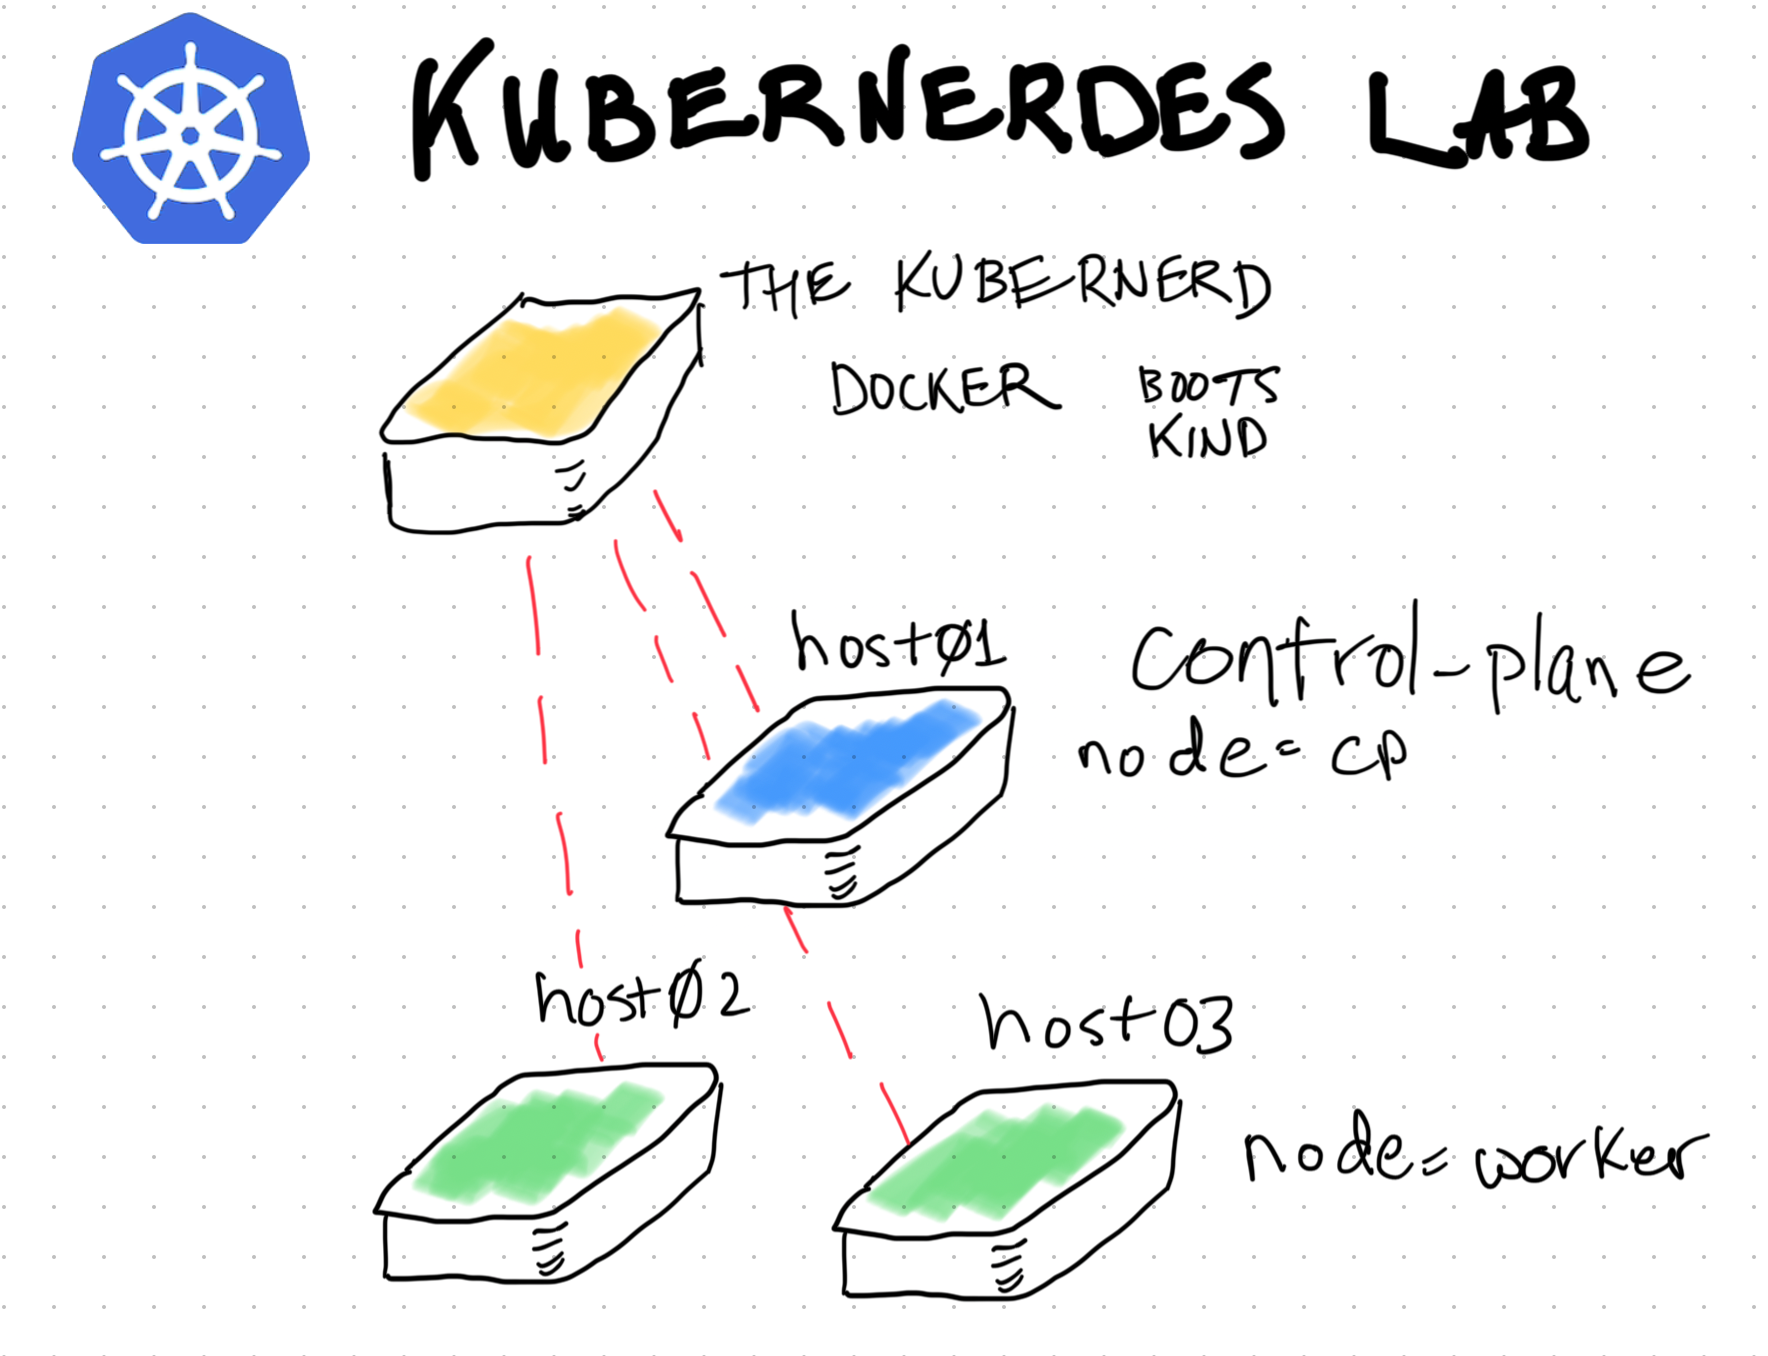 KUBERNERDES LAB
THE KUBERNERD
DOCKER BOOTS
KIND
host01
control-plane
node=cp
host02
host03
node=worker